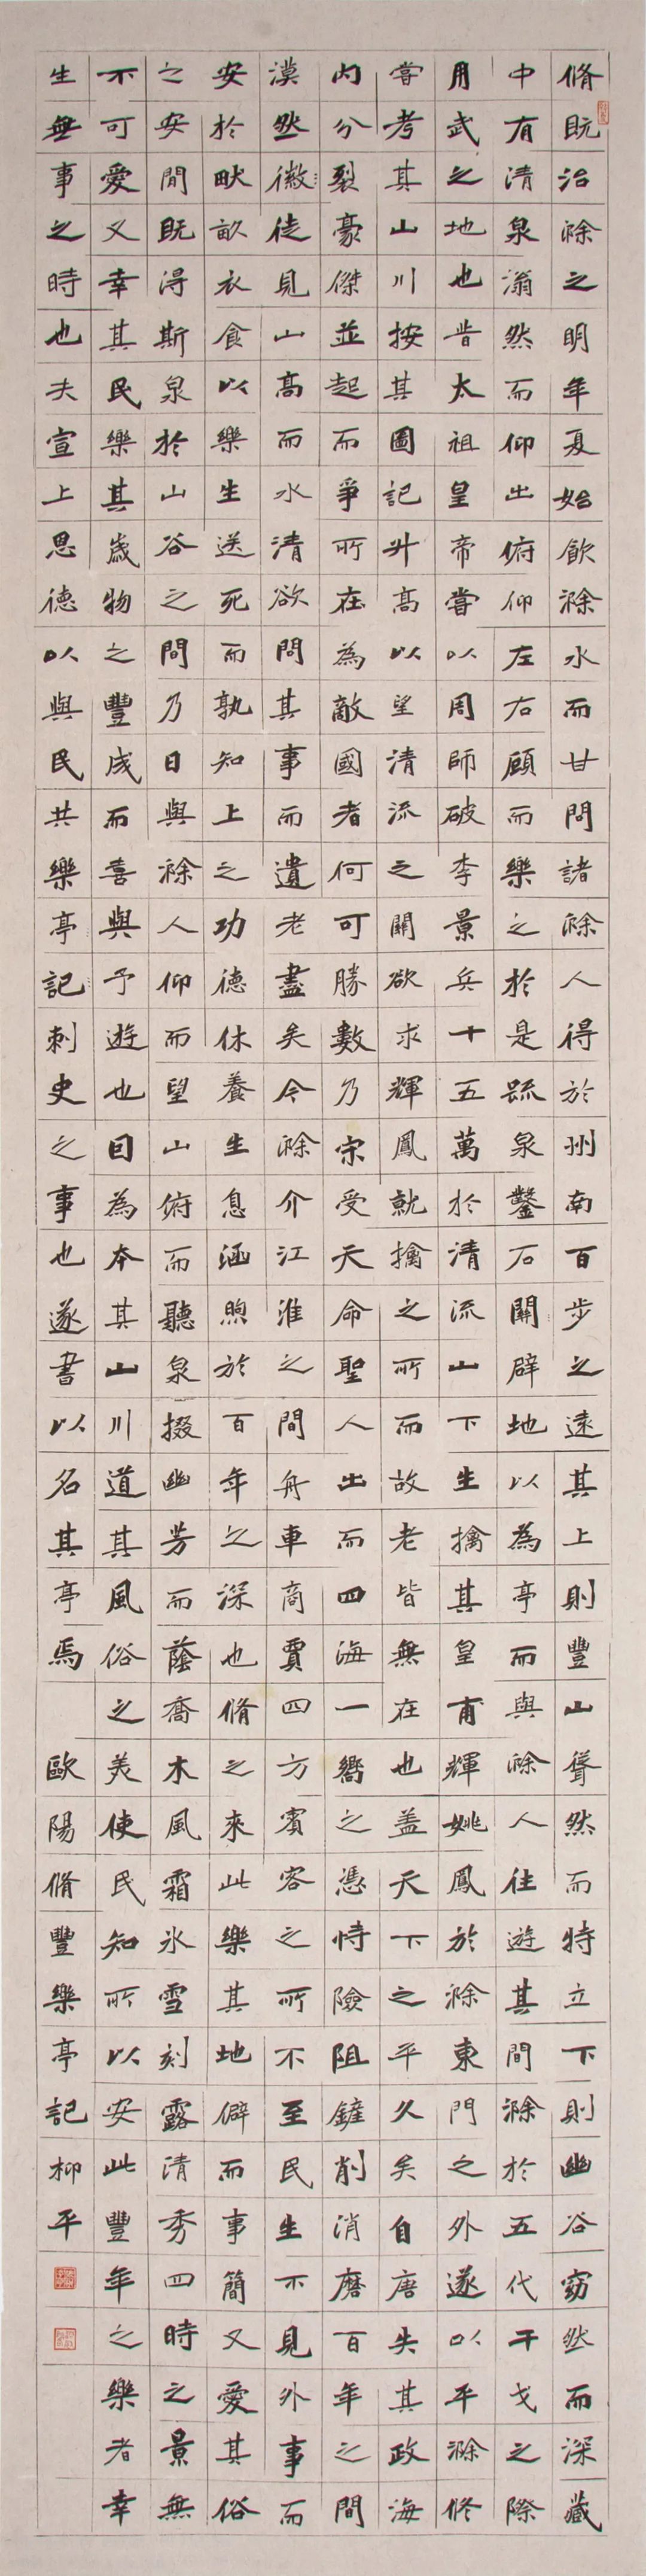 脩既治滁之明年夏始飲滁水而甘問諸滁人得於州南百步之遠其上則豐山聳然而特立下則幽谷窈然而深藏
中有清泉滃然而仰出俯仰左右顧而樂之於是疏泉鑿石關辟地以為亭而與滁人往遊其間滁於五代干戈之際
用武之地也昔太祖皇帝嘗以周師破李景兵十五萬於清流山下生擒其皇甫輝姚鳳於滁東門之外遂以平滁修
嘗考其山川按其圖記升高以望清流之關欲求輝鳳就擒之所而故老皆無在也蓋天下之平久矣自唐失其政海
內分裂豪傑並起而爭所在為敵國者何可勝數乃宋受天命聖人出而四海一嚮之憑恃險阻鏟削消磨百年之間
漠然徽徒見山高而水清欲問其事而遺老盡矣今滁介江淮之間舟車商賈四方賓客之所不至民生不見外事而
安於畎畝衣食以樂生送死而孰知上之功德休養生息涵煦於百年之深也脩之來此樂其地僻而事簡又愛其俗
之安間既得斯泉於山谷之間乃日與滁人仰而望山俯而聽泉掇幽芳而蔭喬木風霜氷雪刻露清秀四時之景無
不可愛又幸其民樂其歲物之豐成而喜與予遊也囙為本其山川道其風俗之美使民知所以安此豐年之樂者幸
生無事之時也夫宣上恩德以與民共樂亭記刺史之事也遂書以名其亭焉 歐陽脩豐樂亭記柳平